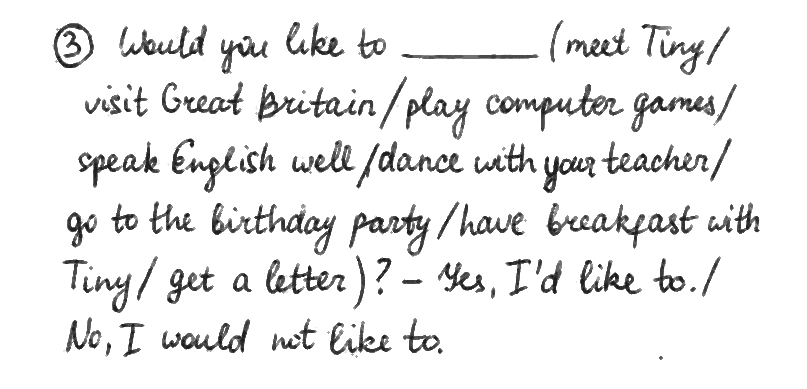 ③ Would you like to ________ (meet Tiny/
visit Great Britain/play computer games/
speak English well/dance with your teacher/
go to the birthday party/have breakfast with
Tiny/ get a letter)? – Yes, I'd like to./
No, I would not like to.